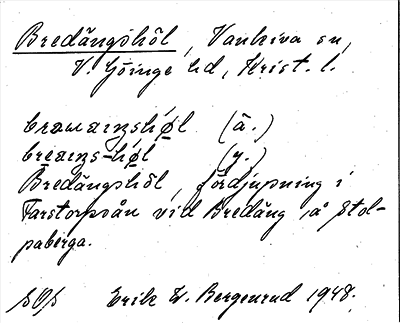 Bredängshöl, Vankiva sn,
V. Göinge hd, Krist. l.
(ä.)
(y.)
Bredängshöl, fördjupning i
Farstorpsån vid Bredäng, å Stol-
paberga.
SOS Erik W. Bergenrud 1948.